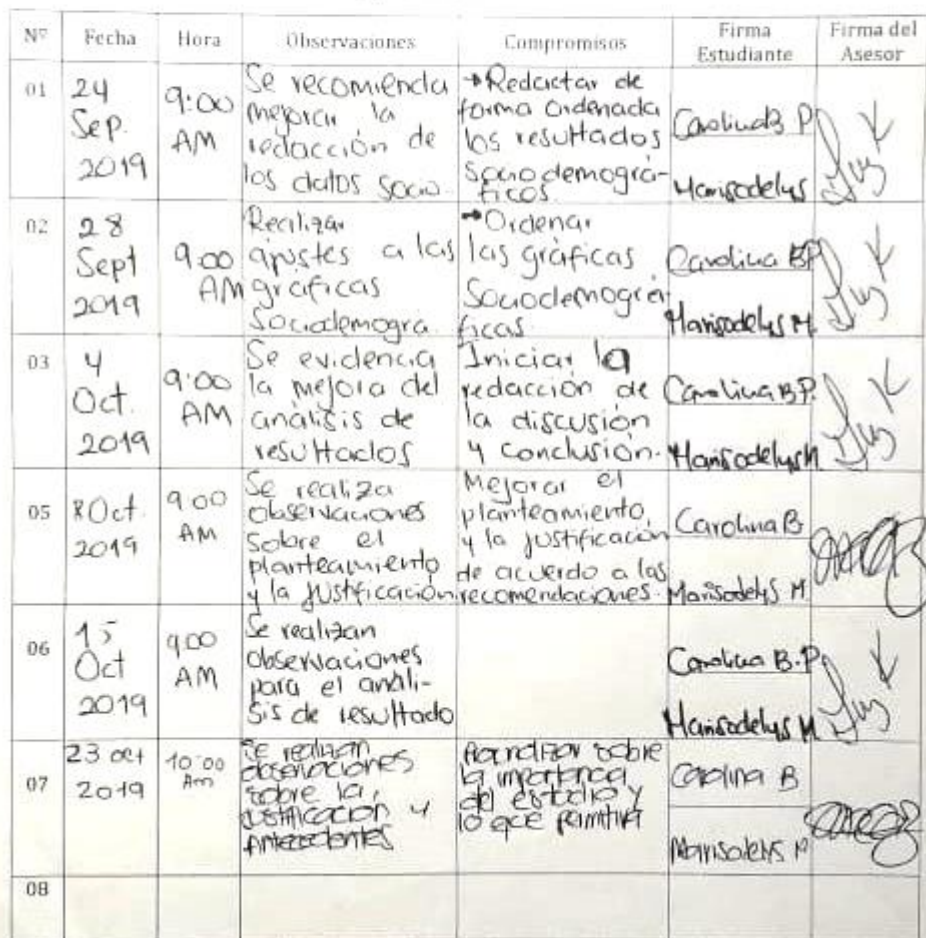 Nº Fecha Hora Observaciones Compromisos Firma Estudiante Firma del Asesor
01
24
Sep.
2019
9:00
AM
Se recomienda
mejorar la
redacción de
los datos socio.
→Redactar de
forma ordenada
los resultados
Sociodemográ-
ficos.
Carolina B P
Marisodelys
02
28
Sept
2019
9:00
AM
Realizar
ajustes a las
gráficas
Sociodemogra.
→Ordenar
las gráficas
Sociodemográ
ficas
Carolina BP
Marisodelys M.
03
4
Oct.
2019
9:00
AM
Se evidencia
la mejora del
análisis de
resultados
Iniciar la
redacción de
la discusión
y conclusión.
Carolina B.P.
Marisodelys M
05
8 Oct.
2019
9:00
AM
Se realiza
observaciones
sobre el
planteamiento
y la justificación
Mejorar el
planteamiento,
y la justificación
de acuerdo a las
recomendaciones.
Carolina B
Marisodelys M
06
15
Oct
2019
9:00
AM
Se realizan
observaciones
para el análi-
sis de resultado
Carolina B.P
Marisodelys M
07
23 oct
2019
10:00
Am
Se realizan
observaciones
sobre la
justificación y
Antecedentes
sobre
la importancia
del estudio y
lo que
Carolina B
Marisodelys M
08